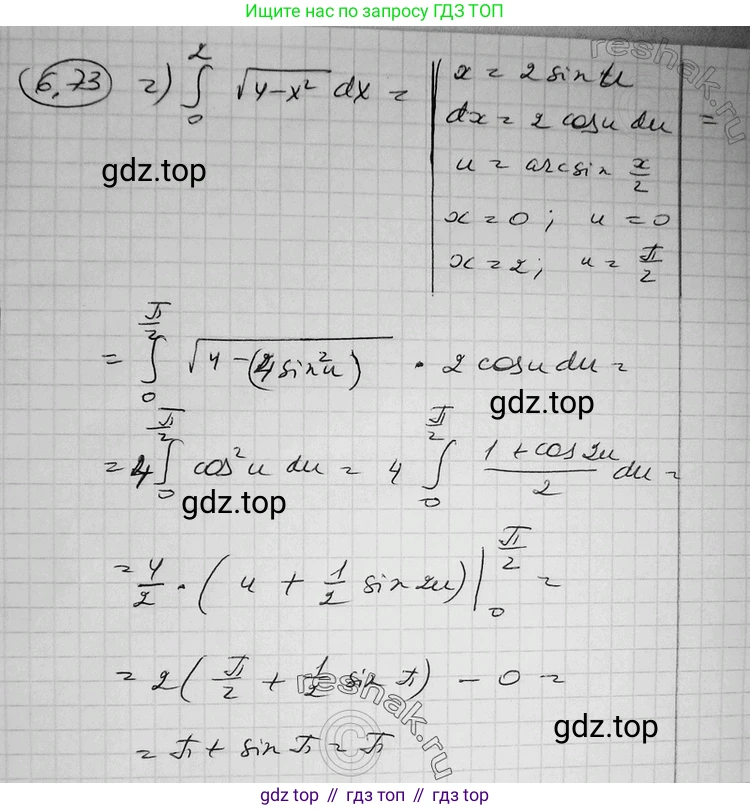 Ищите нас по запросу ГДЗ ТОП
6.73 г) ∫₀² √(4-x²) dx = | x = 2 sin u
dx = 2 cos u du | =
u = arcsin x/2
gdz.top
x = 0; u = 0
x = 2; u = π/2
= ∫₀^(π/2) √(4-(4 sin²u)) · 2 cos u du =
gdz.top
= 4 ∫₀^(π/2) cos²u du = 4 ∫₀^(π/2) (1 + cos 2u)/2 du =
gdz.top
= 4/2 · (u + 1/2 sin 2u) |₀^(π/2) =
= 2 (π/2 + 1/2 sin π) - 0 =
reshak.ru
gdz.top
= π + sin π = π
©
reshak.ru
gdz.top // гдз.топ // gdz.top